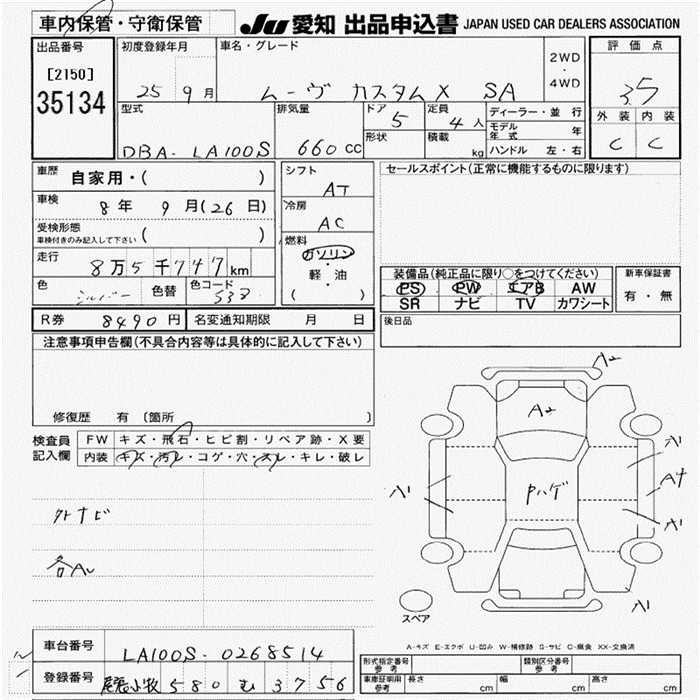 車内保管・守衛保管
JU 愛知 出品申込書 JAPAN USED CAR DEALERS ASSOCIATION
出品番号
[2150]
35134
初度登録年月
25 9 月
車名・グレード
ムーヴ カスタムX SA
2WD
・
4WD
評価点
3.5
外装 内装
C C
型式
DBA-LA100S
排気量
660 CC
ドア
5
形状
定員
4 人
積載
kg
ディーラー・並行
モデル年式 年
ハンドル 左・右
車歴
自家用・( )
車検
8 年 9 月(26 日)
受検形態
車検付きのみ記入して下さい ( )
走行
8万5千747km
色
シルバー
色替
色コード
S38
シフト
AT
冷房
AC
燃料
ガソリン
・
軽・油
( )
セールスポイント(正常に機能するものに限ります)
装備品(純正品に限り○をつけてください)
PS PW エアB AW
SR ナビ TV カワシート
新車保証書
有・無
R券 8490 円 名変通知期限 月 日
後日品
注意事項申告欄(不具合内容等は具体的に記入して下さい)
修復歴 有 〔箇所 〕
検査員
記入欄
FW キズ・飛石・ヒビ割・リペア跡・X要
内装 キズ・汚レ・コゲ・穴・スレ・キレ・破レ
外ナビ
各AU
A2
A2
A1
A1
Pハゲ
A4
A1
A1
スペア
A-キズ E-エクボ U-凹み W-補修跡 S-サビ C-腐食 XX-交換済
車台番号
LA100S-0268514
登録番号
尾張小牧 580 む 3756
形式指定番号
参考
類別区分番号
参考
車庫証明用
参考
長さ cm 幅 cm 高さ cm